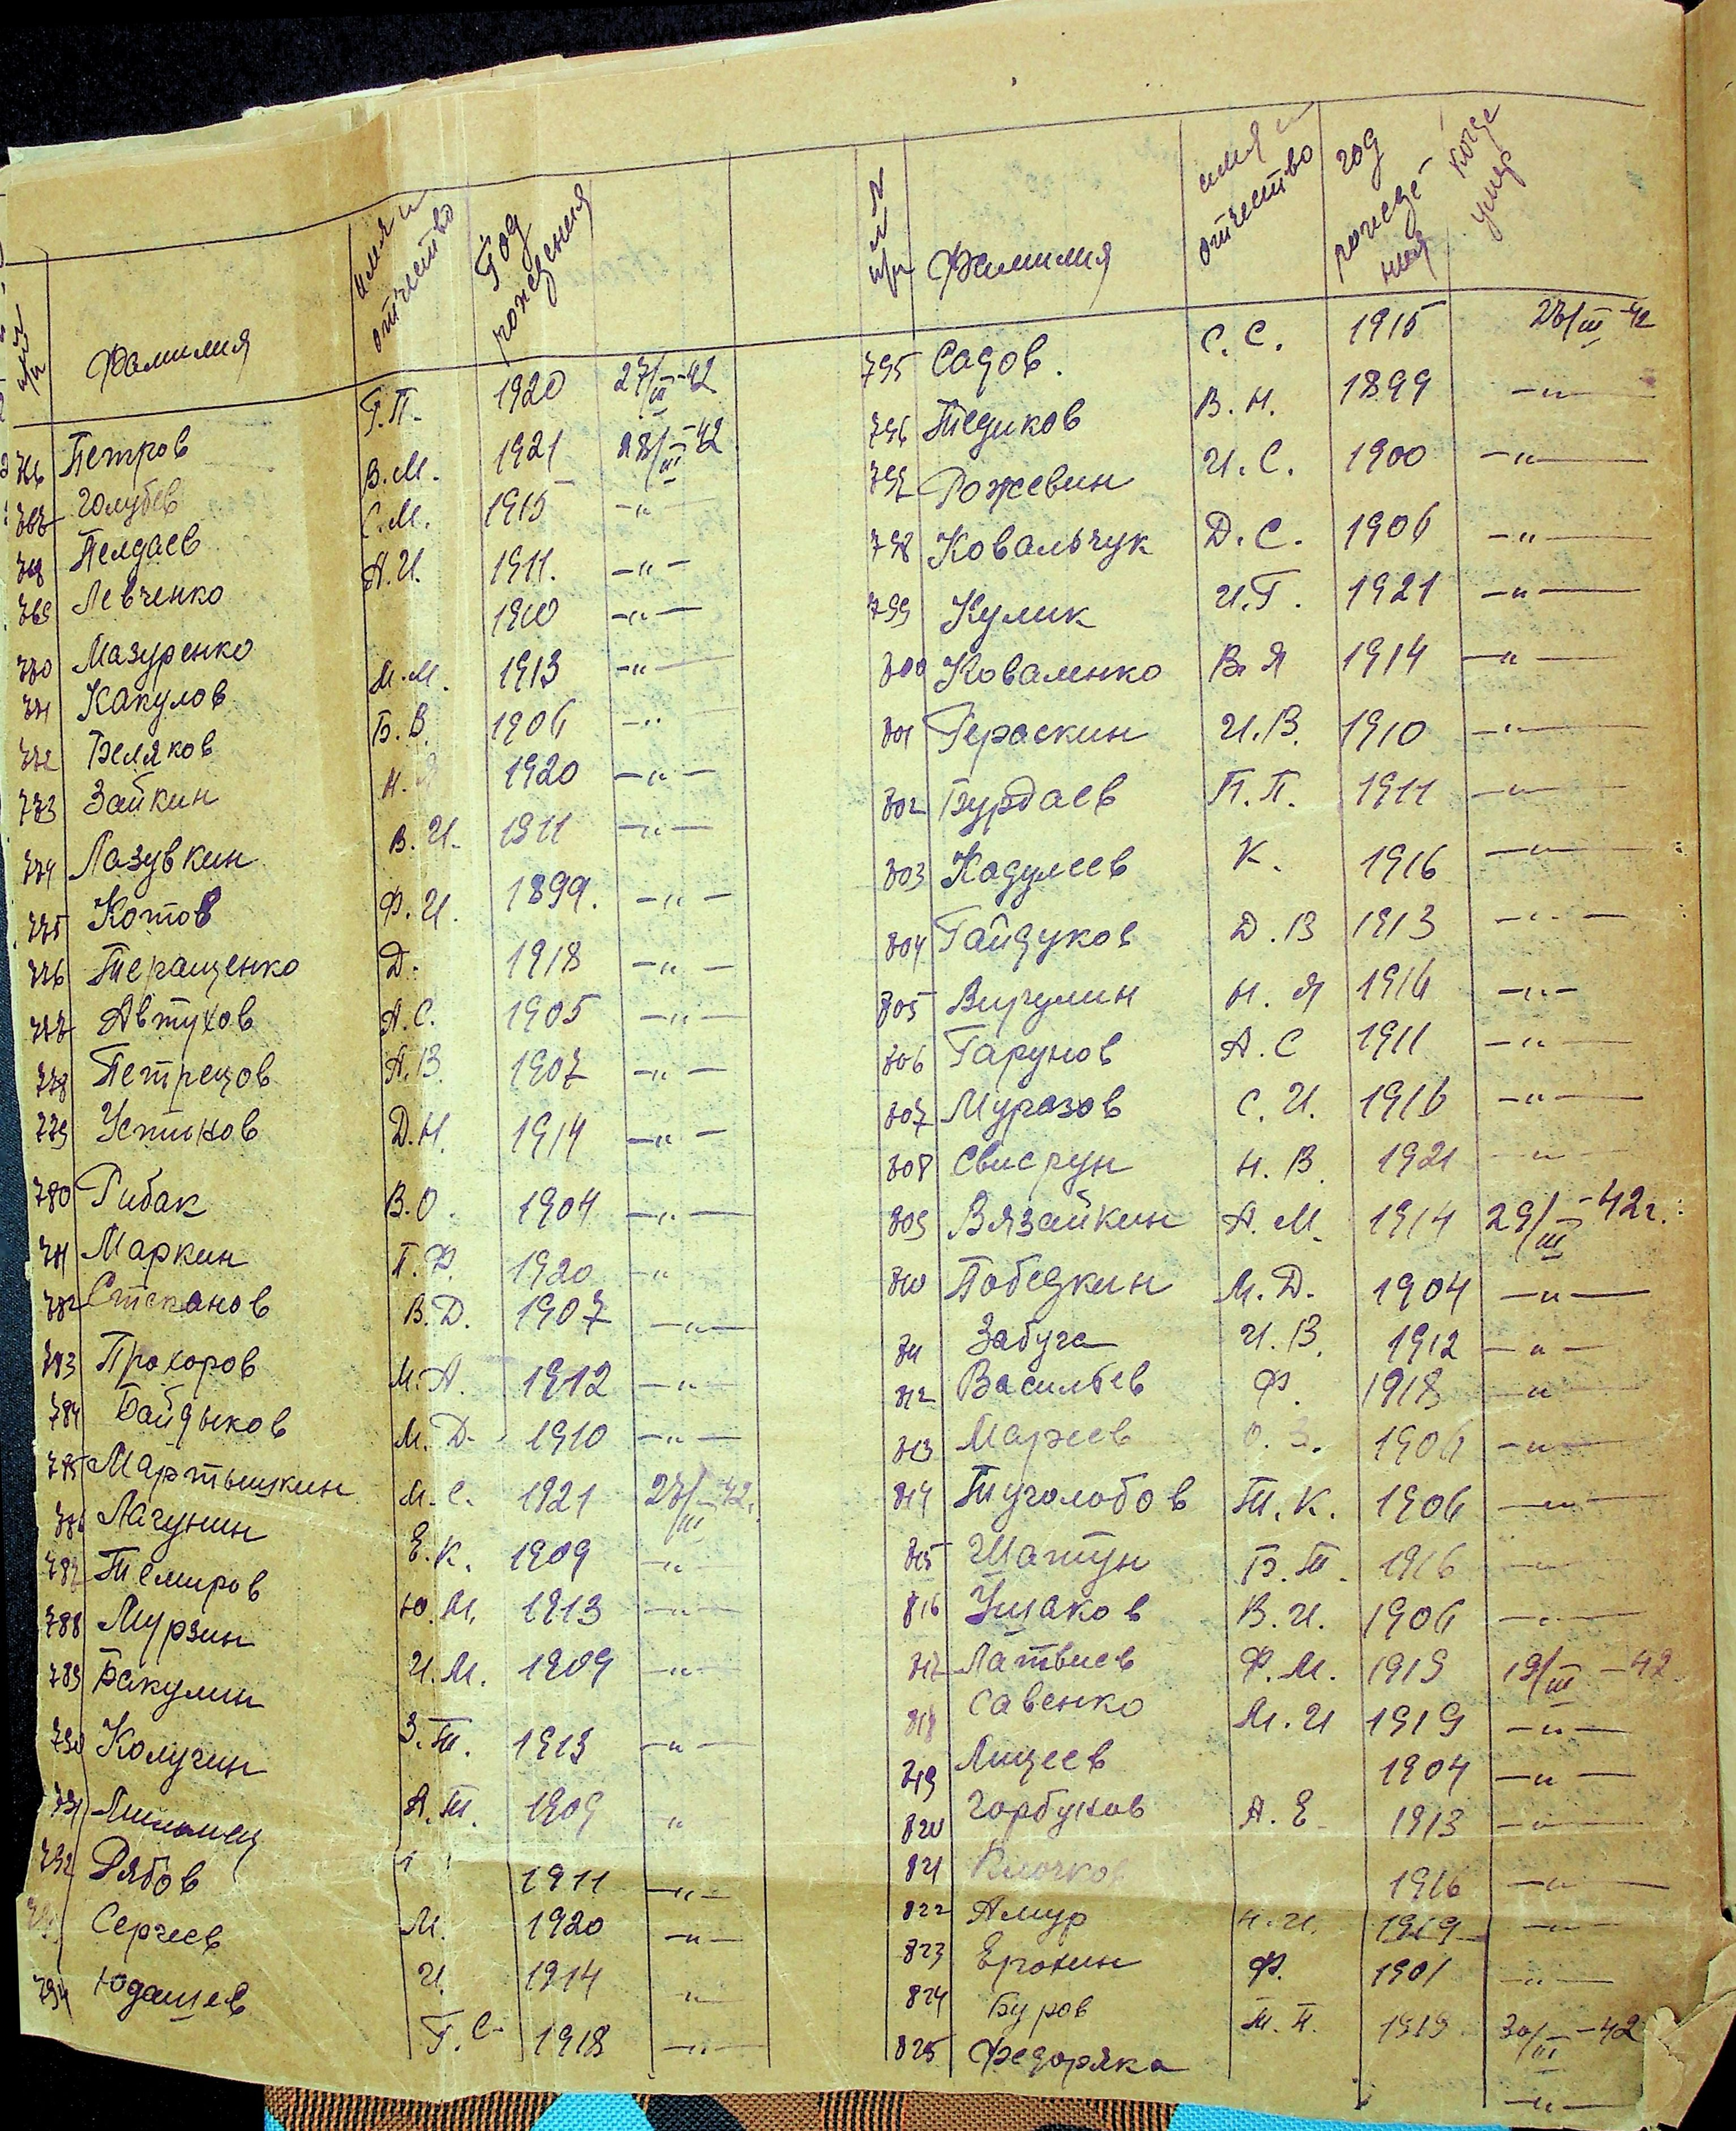 №№ п/п Фамилия имя и отчество Год рождения
766 Петров Г.П. 1920 27/III-42
767 Голубев В.М. 1921 28/III-42
768 Пелдаев С.М. 1915 -"-
769 Левченко А.И. 1911. -"-
770 Мазуренко 1910 -"-
771 Какулов М.М. 1913 -"-
772 Беляков Б.В. 1906 -"-
773 Зайкин Н.Я 1920 -"-
774 Лазувкин В.И. 1911 -"-
775 Котов Ф.И. 1899. -"-
776 Теращенко Д. 1918 -"-
777 Автухов А.С. 1905 -"-
778 Петрецов А.В. 1907 -"-
779 Устинов Д.Н. 1914 -"-
780 Рибак В.О. 1904 -"-
781 Маркин Г.Ф. 1920 -"-
782 Степанов В.Д. 1907 -"-
783 Прохоров М.А. 1912 -"-
784 Байдыков М.Д. 1910 -"-
785 Мартышкин М.С. 1921 28/III-42г.
786 Лагунин Е.К. 1909 -"-
787 Темиров Ю.М. 1913 -"-
788 Мурзин И.М. 1909 -"-
789 Бакулин З.Т. 1913 -"-
790 Колугин А.Т. 1909 "
791 1911 -"-
792 Рябов М. 1920 -"-
793 Сергеев И. 1914 -"-
794 Юдашев Г.С. 1918 -"-
№№ п/п Фамилия имя и отчество год рождения когда умер
795 Садов. С.С. 1915 28/III-42
796 Тедиков В.Н. 1899 -"-
797 Рожевин И.С. 1900 -"-
798 Ковальчук Д.С. 1906 -"-
799 Кулик И.Г. 1921 -"-
800 Коваленко В.Я 1914 -"-
801 Гераскин И.В. 1910 -"-
802 Бурдаев П.П. 1911 -"-
803 Кадулеев К. 1916 -"-
804 Гайдуков Д.В 1913 -"-
805 Вигулин Н.Я 1916 -"-
806 Гарунов А.С 1911 -"-
807 Муразов С.И. 1916 -"-
808 Свисрун Н.В. 1921 -"-
809 Вязайкин А.М. 1914 29/III-42г.
810 Победкин М.Д. 1904 -"-
811 Забуга И.В. 1912 -"-
812 Васильев Ф. 1918 -"-
813 Мареев О.З. 1906 -"-
814 Туголобов Т.К. 1906 -"-
815 Шатун Б.Т. 1916 -"-
816 Ушаков В.И. 1906 -"-
817 Латвиев Ф.М. 1919 19/III-42
818 Савенко М.И 1919 -"-
819 Лицеев 1904 -"-
820 Горбунов А.Е 1913 -"-
821 Клочков 1916 -"-
822 Амур Н.И. 1919 -"-
823 Ерохин Ф. 1901 -"-
824 Буров Т.П. 1919 30/III-42
825 Федоряка -"-